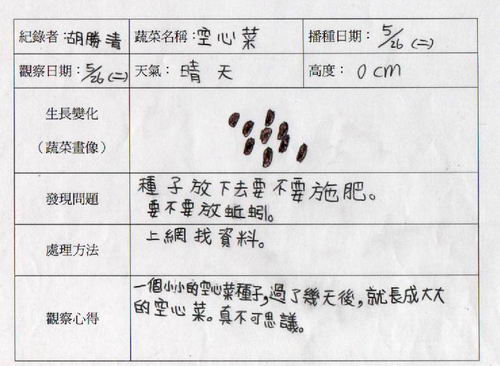 紀錄者：胡勝清 蔬菜名稱：空心菜 播種日期：5/26(二)
觀察日期：5/26(二) 天氣：晴天 高度：0cm
生長變化
（蔬菜畫像）
發現問題 種子放下去要不要施肥。
要不要放蚯蚓。
處理方法 上網找資料。
一個小小的空心菜種子，過了幾天後，就長成大大
的空心菜。真不可思議。
觀察心得